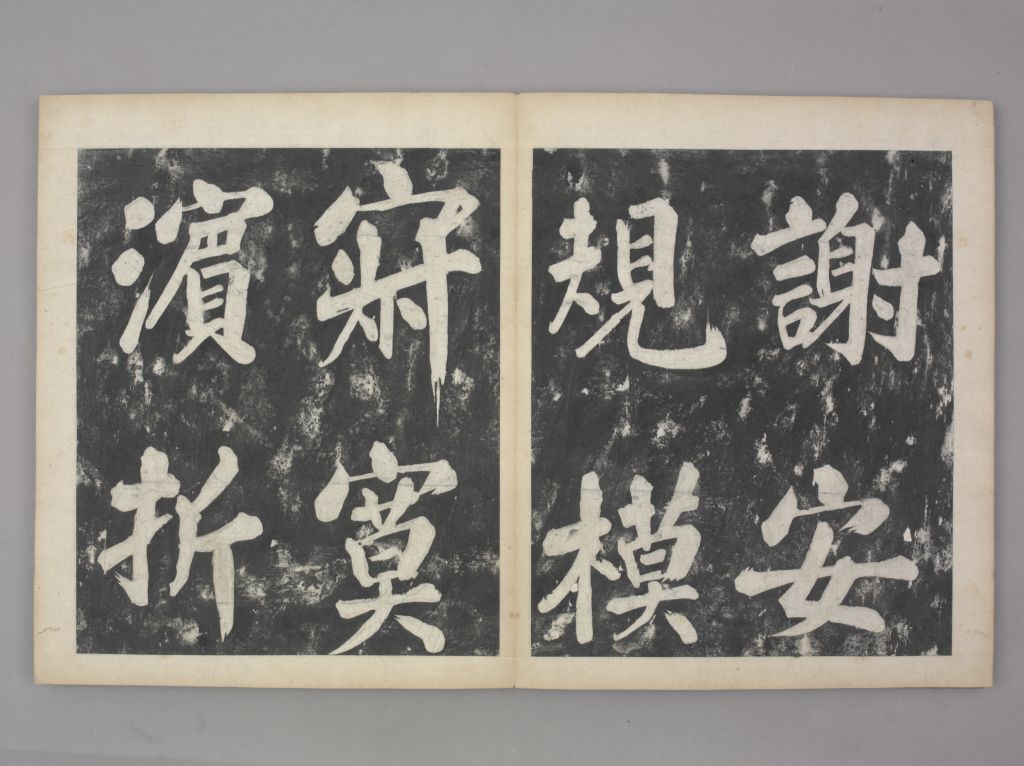 謝安
規模
寂寞
濱折